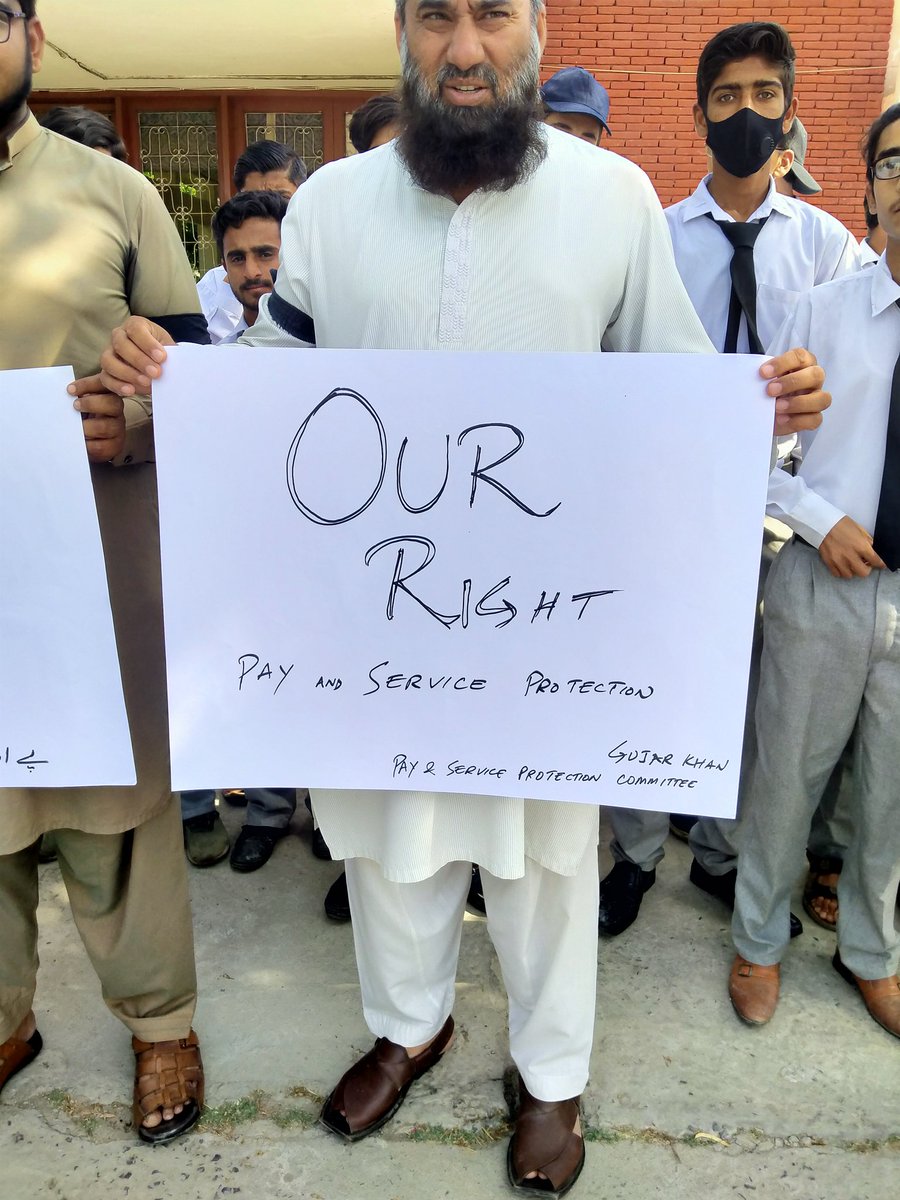 OUR
RIGHT
PAY AND SERVICE PROTECTION
GUJAR KHAN
PAY & SERVICE PROTECTION COMMITTEE